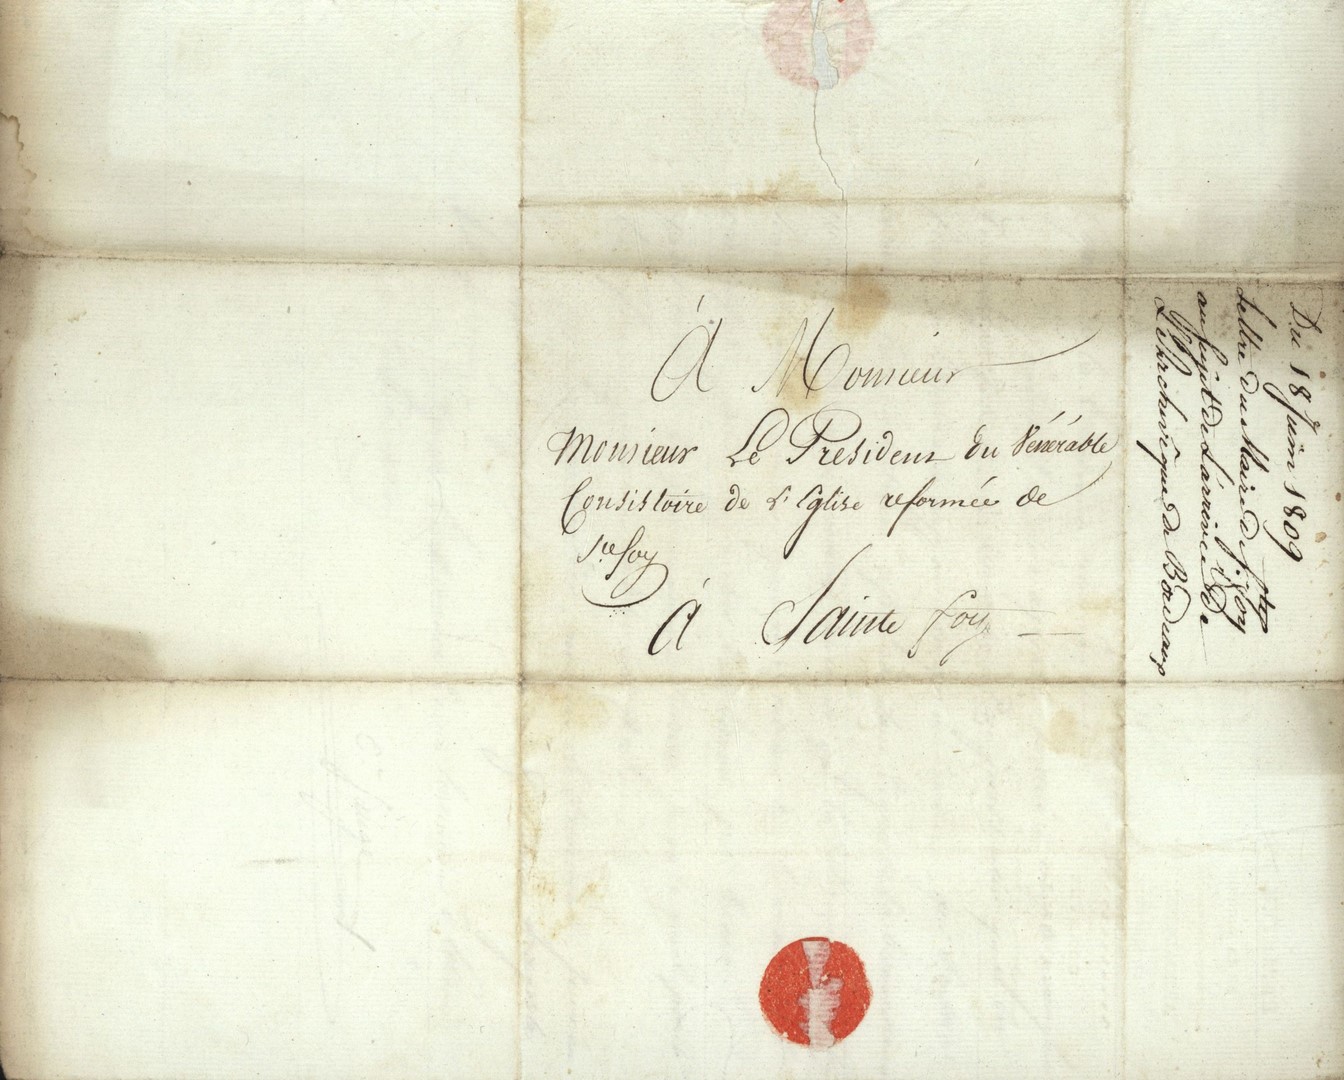 À Monsieur
Monsieur Le President du Vénérable
Consistoire de L'Eglise reformée de
Ste foy
À Sainte foy
Du 18 Juin 1809
Lettre du Maire de Ste foy
au sujet de L'arrivée de
L'Archevêque de Bordeaux